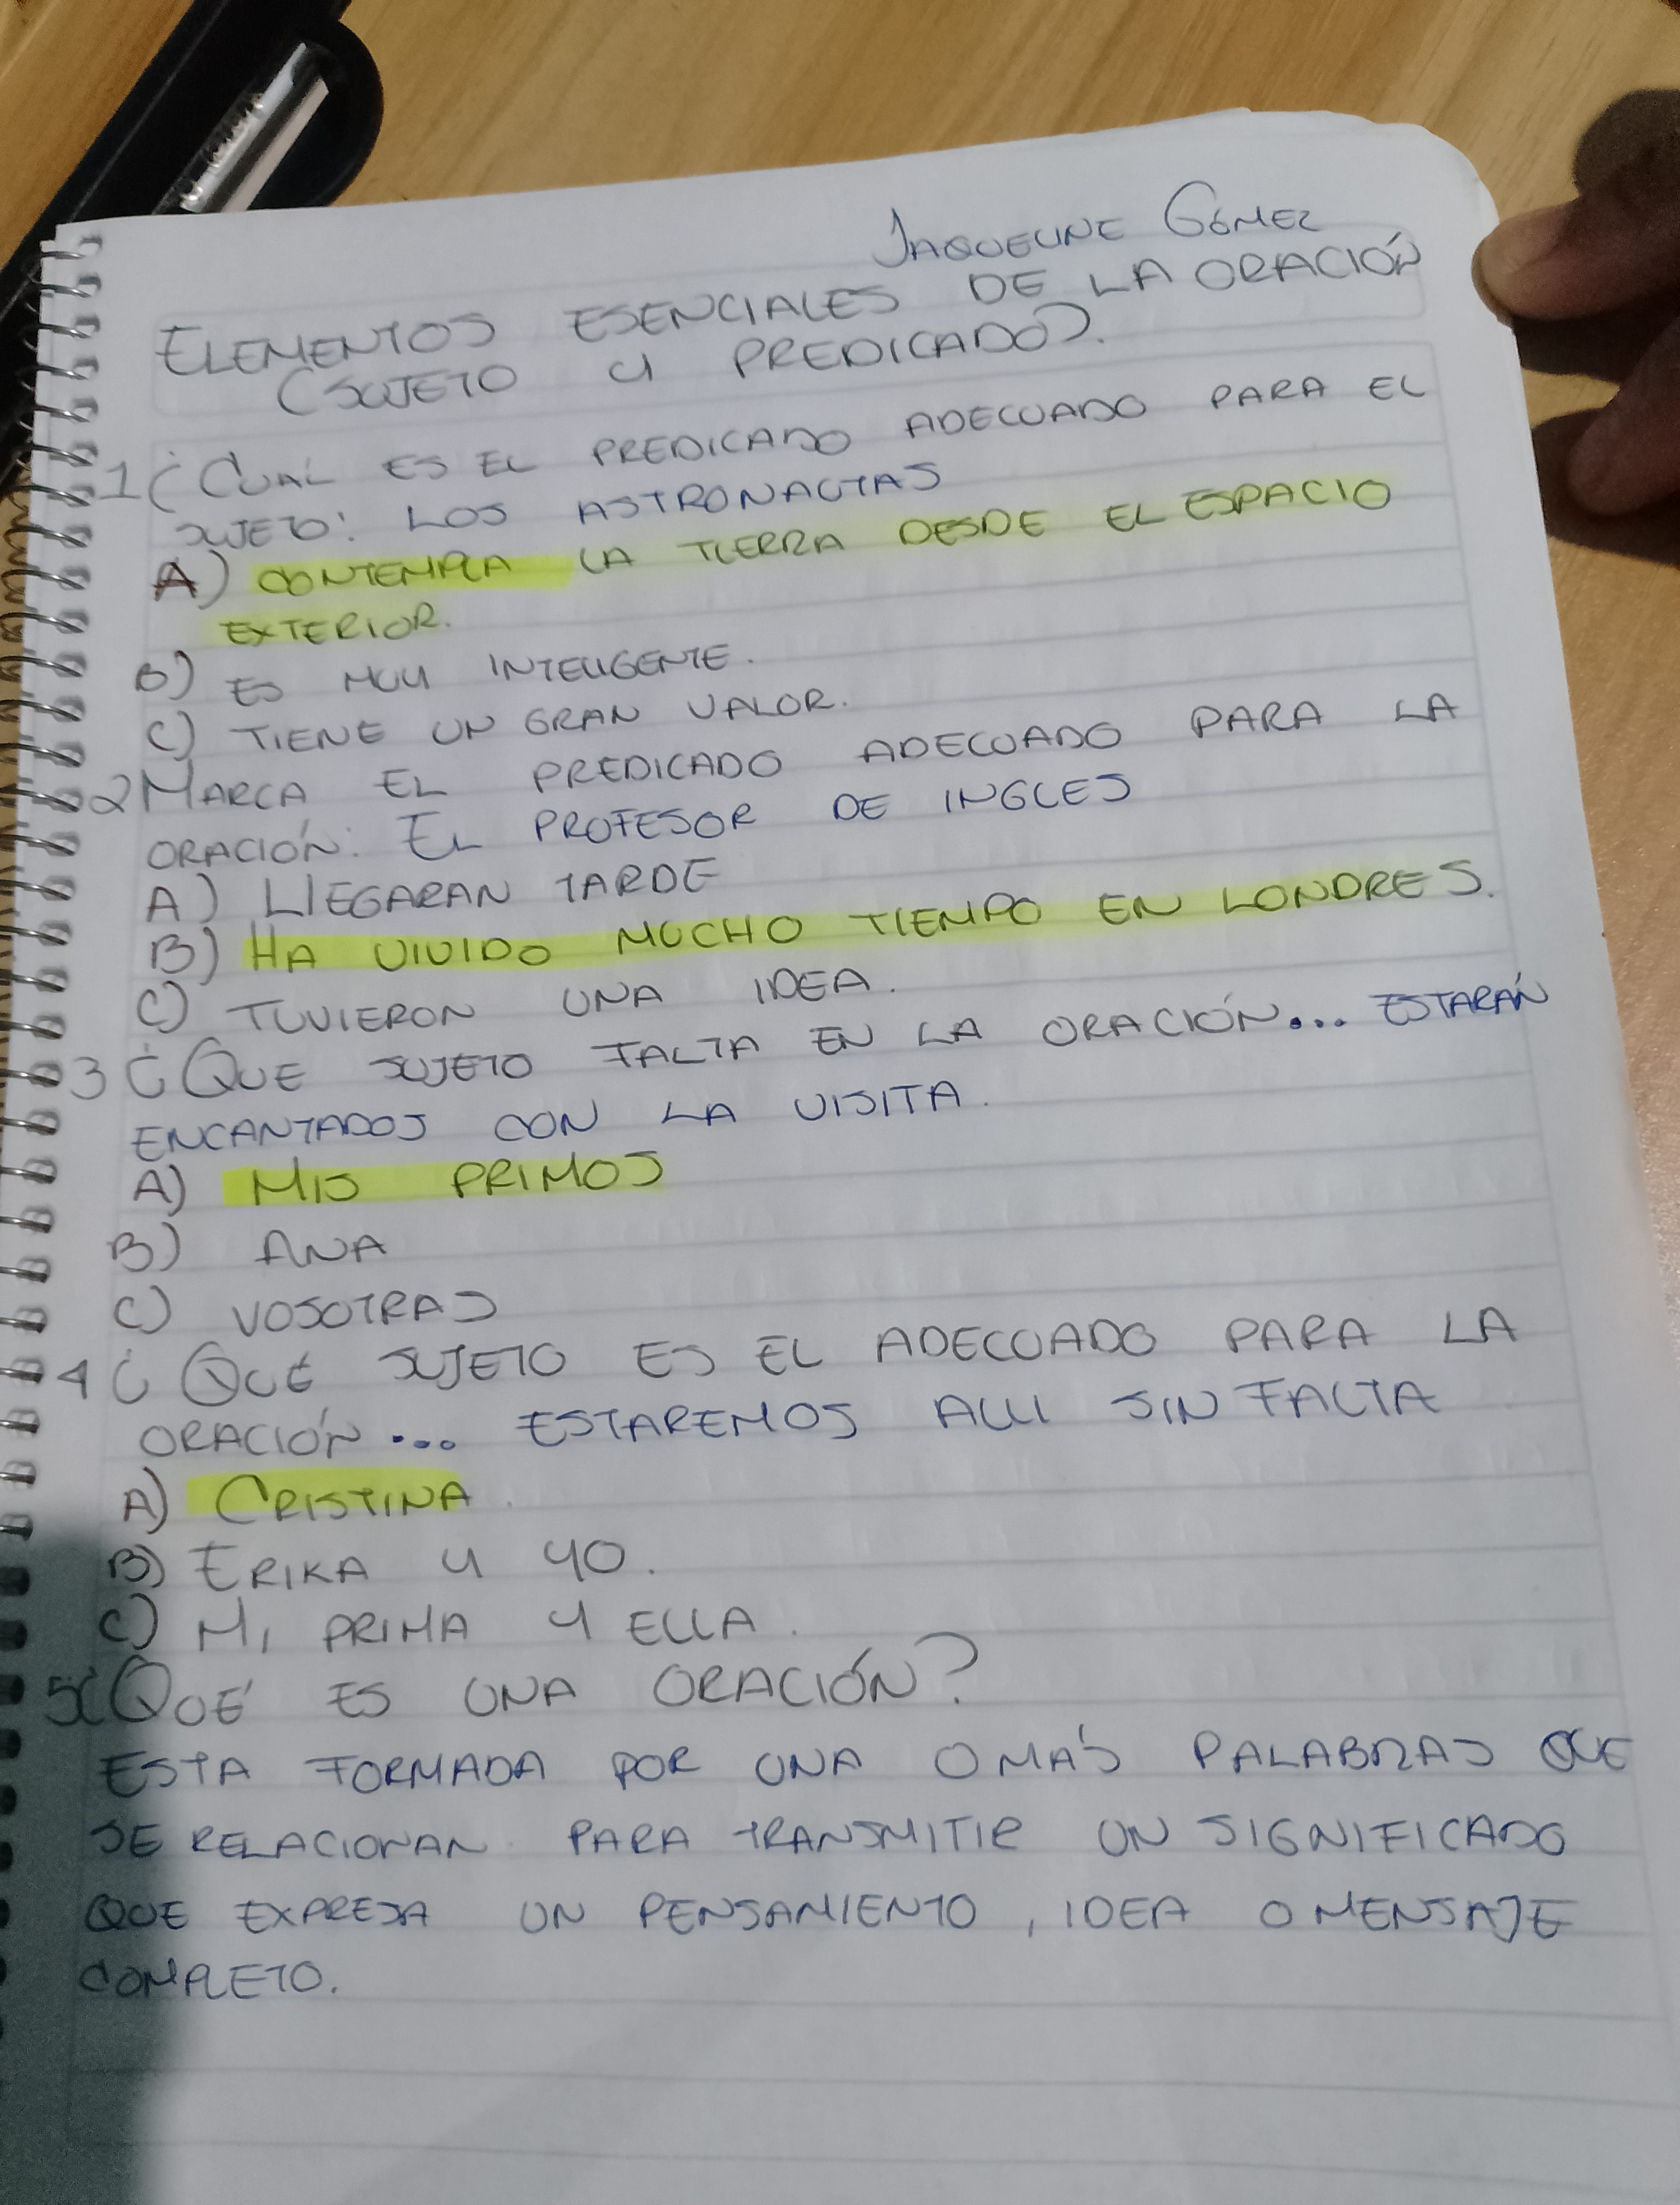 JAQUELINE GÓMEZ
ELEMENTOS ESENCIALES DE LA ORACIÓN
(SUJETO Y PREDICADO).
1 ¿CUAL ES EL PREDICADO ADECUADO PARA EL
SUJETO: LOS ASTRONAUTAS
A) CONTEMPLA LA TIERRA DESDE EL ESPACIO
EXTERIOR.
B) ES MUY INTELIGENTE.
C) TIENE UN GRAN VALOR.
2 MARCA EL PREDICADO ADECUADO PARA LA
ORACIÓN: EL PROFESOR DE INGLES
A) LLEGARAN TARDE
B) HA VIVIDO MUCHO TIEMPO EN LONDRES.
C) TUVIERON UNA IDEA.
3 ¿QUE SUJETO FALTA EN LA ORACIÓN... ESTARÁN
ENCANTADOS CON LA VISITA.
A) MIS PRIMOS
B) ANA
C) VOSOTRAS
4 ¿QUÉ SUJETO ES EL ADECUADO PARA LA
ORACIÓN... ESTAREMOS ALLI SIN FALTA
A) CRISTINA.
B) ERIKA Y YO.
C) MI PRIMA Y ELLA.
5 ¿QUÉ ES UNA ORACIÓN?
ESTA FORMADA POR UNA O MÁS PALABRAS QUE
SE RELACIONAN PARA TRANSMITIR UN SIGNIFICADO
QUE EXPRESA UN PENSAMIENTO, IDEA O MENSAJE
COMPLETO.